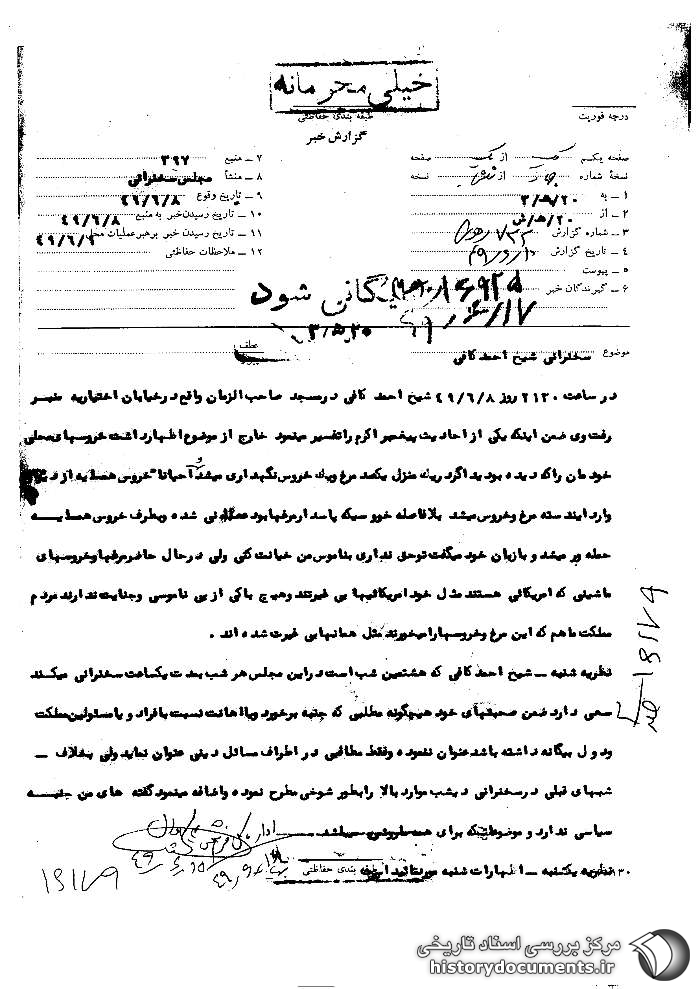 خیلی محرمانه
طبقه بندی حفاظتی
گزارش خبر
درجه فوریت
صفحه یکم از یک صفحه
نسخهٔ شماره از نسخه
۱ ـ به ۳ ۵ ۲۰
۲ ـ از ۲۰ ۵
۳ ـ شماره گزارش ۷۳۳
۴ ـ تاریخ گزارش
۵ ـ پیوست
۶ ـ گیرندگان خبر
۷ ـ منبع ۳۹۷
۸ ـ منشأ مجلس سخنرانی
۹ ـ تاریخ وقوع ۴۹/۶/۸
۱۰ ـ تاریخ رسیدن خبر به منبع ۴۹/۶/۸
۱۱ ـ تاریخ رسیدن خبر برهبر عملیات محلی ۴۹/۶/۹
۱۲ ـ ملاحظات حفاظتی
بایگانی شود
۳ ۵ ۲۰
موضوع سخنرانی شیخ احمد کافی
عطف
در ساعت ۲۱۲۰ روز ۴۹/۶/۸ شیخ احمد کافی در مسجد صاحب الزمان واقع در خیابان اختیاریه منبر
رفت وی ضمن اینکه یکی از احادیث پیغمبر اکرم را تفسیر مینمود خارج از موضوع اظهار داشت خروسهای محلی
خودمان را که دیده بودید اگر در یک منزل یکصد مرغ و یک خروس نگهداری میشد و احیانا خروس همسایه از دیوار
وارد ایندسته مرغ و خروس میشد بلافاصله خروسیکه پاسدار مرغها بود عصبانی شده و بطرف خروس همسایه
حمله ور میشد و با زبان خود میگفت تو حق نداری بناموس من خیانت کنی ولی در حال حاضر مرغها و خروسهای
ماشینی که امریکائی هستند مثل خود امریکائیها بی غیرتند و هیچ باکی از بی ناموسی و جنایت ندارند مردم
مملکت ما هم که این مرغ و خروسها را میخورند مثل همانها بی غیرت شده اند .
نظریه شنبه ـ شیخ احمد کافی که هشتمین شب است در این مجلس هر شب بمدت یکساعت سخنرانی میکند
سعی دارد ضمن صحبتهای خود هیچگونه مطلبی که جنبه برخورد و یا اهانت نسبت بافراد و یا مسئولین مملکت
و دول بیگانه داشته باشد عنوان ننموده و فقط مطالبی در اطراف مسائل دینی عنوان نماید ولی بخلاف ـ
شبهای قبلی در سخنرانی دیشب موارد بالا را بطور شوخی مطرح نموده و اضافه مینمود گفته های من جنبه
سیاسی ندارد و موضوعیکه برای همه روشن میباشد
نظریه یکشنبه ـ اظهارات شنبه مورد تائید است
طبقه بندی حفاظتی
مرکز بررسی اسناد تاریخی
historydocuments.ir